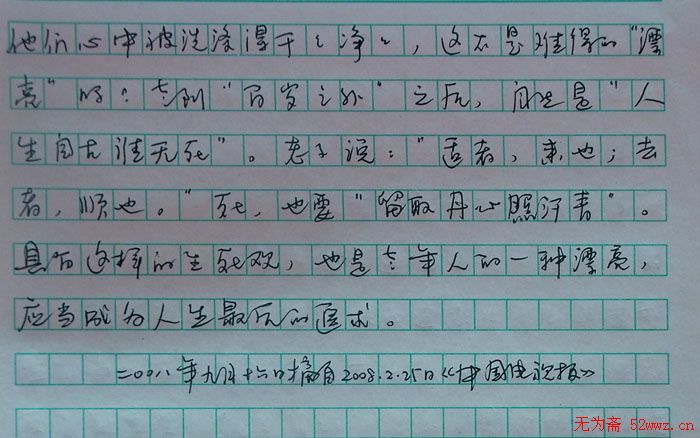 他们心中被洗涤得干干净净，这不是难得的“漂
亮”吗？去到“百岁之外”之后，自然是“人
生自古谁无死”。老子说：“适者，来也；去
者，顺也。”死，也要“留取丹心照汗青”。
具有这样的生死观，也是老年人的一种漂亮，
应当成为人生最后的追求。
二〇〇八年九月十六日摘自2008.2.25日《中国电视报》
无为斋 52wwz.cn